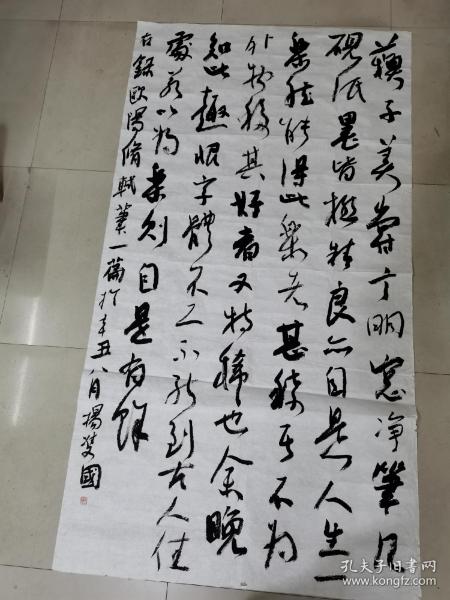 蘇子美嘗言明窓净筆几
硯紙墨皆極精良亦自是人生一
樂然能得此樂者甚稀其不為
外物移其好者又特稀也余晚
知此趣恨字體不工不能到古人佳
處若以為樂則自是有餘
右錄歐陽脩軾筆一篇於辛丑八月楊雙國
孔夫子旧书网
www.kongfz.com